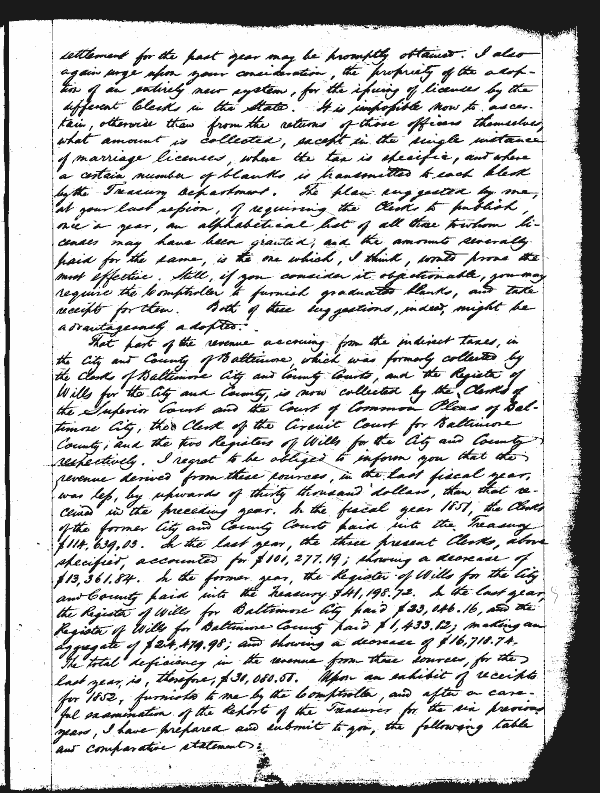 settlement for the past year may be promptly obtained. I also
again urge upon your consideration, the propriety of the adop-
tion of an entirely new system, for the issuing of licenses by the
different Clerks in the State. It is impossible now to ascer-
tain, otherwise than from the returns of those officers themselves,
what amount is collected, except in the single instance
of marriage licenses, where the tax is specific, and where
a certain number of blanks is transmitted to each Clerk
by the Treasury Department. The plan suggested by me,
at your last session, of requiring the Clerks to publish,
once a year, an alphabetical list of all those to whom li-
censes may have been granted, and the amounts severally
paid for the same, is the one which, I think, would prove the
most effective. Still, if you consider it objectionable, you may
require the Comptroller to furnish graduated blanks, and take
receipts for them. Both of these suggestions, indeed, might be
advantageously adopted.
That part of the revenue accruing from the indirect taxes, in
the City and County of Baltimore, which was formerly collected by
the Clerks of Baltimore City and County Courts, and the Register of
Wills for the City and County, is now collected by the Clerks of
the Superior Court and the Court of Common Pleas of Bal-
timore City, the Clerk of the Circuit Court for Baltimore
County; and the two Registers of Wills for the City and County
respectively. I regret to be obliged to inform you that the
revenue derived from these sources, in the last fiscal year,
was less, by upwards of thirty thousand dollars, than that re-
ceived in the preceding year. In the fiscal year 1851, the Clerks
of the former City and County Courts paid into the Treasury
$114,639.03. In the last year, the three present Clerks, above
specified, accounted for $101,277.19; showing a decrease of
$13,361.84. In the former year, the Register of Wills for the City
and County paid into the Treasury $41,198.72. In the last year,
the Register of Wills for Baltimore City paid $23,046.16, and the
Register of Wills for Baltimore County paid $1,433.82; making an
aggregate of $24,479.98; and showing a decrease of $16,718.74.
The total deficiency in the revenue from these sources, for the
last year, is, therefore, $30,080.58. Upon an exhibit of receipts
for 1852, furnished to me by the Comptroller, and after a care-
ful examination of the Report of the Treasurer for the six previous
years, I have prepared and submit to you, the following table
and comparative statement: